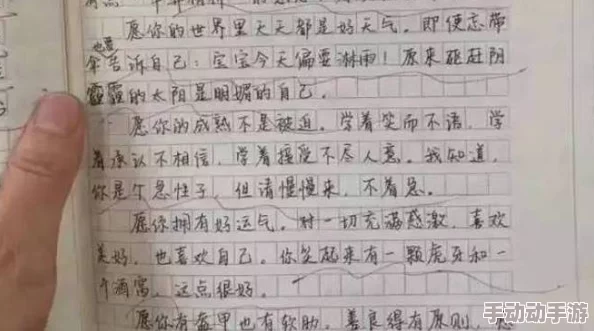 愿你的世界里天天都是好天气。即便忘带
也要
伞告诉自己：宝宝今天偏要淋雨！原来砸赶阴
霾霾的太阳是明媚的自己。
愿你的成熟不是被迫。学着笑而不语，学
着承认不相信，学着接受不尽人意。我知道，
你是个急性子，但请慢慢来，不着急。
愿你拥有好运气。对一切充满感激，喜欢
美好，也喜欢自己。你笑起来有一颗虎牙和一
个酒窝，这点很好。
愿你有盔甲也有软肋，善良得有原则，
手动动手游